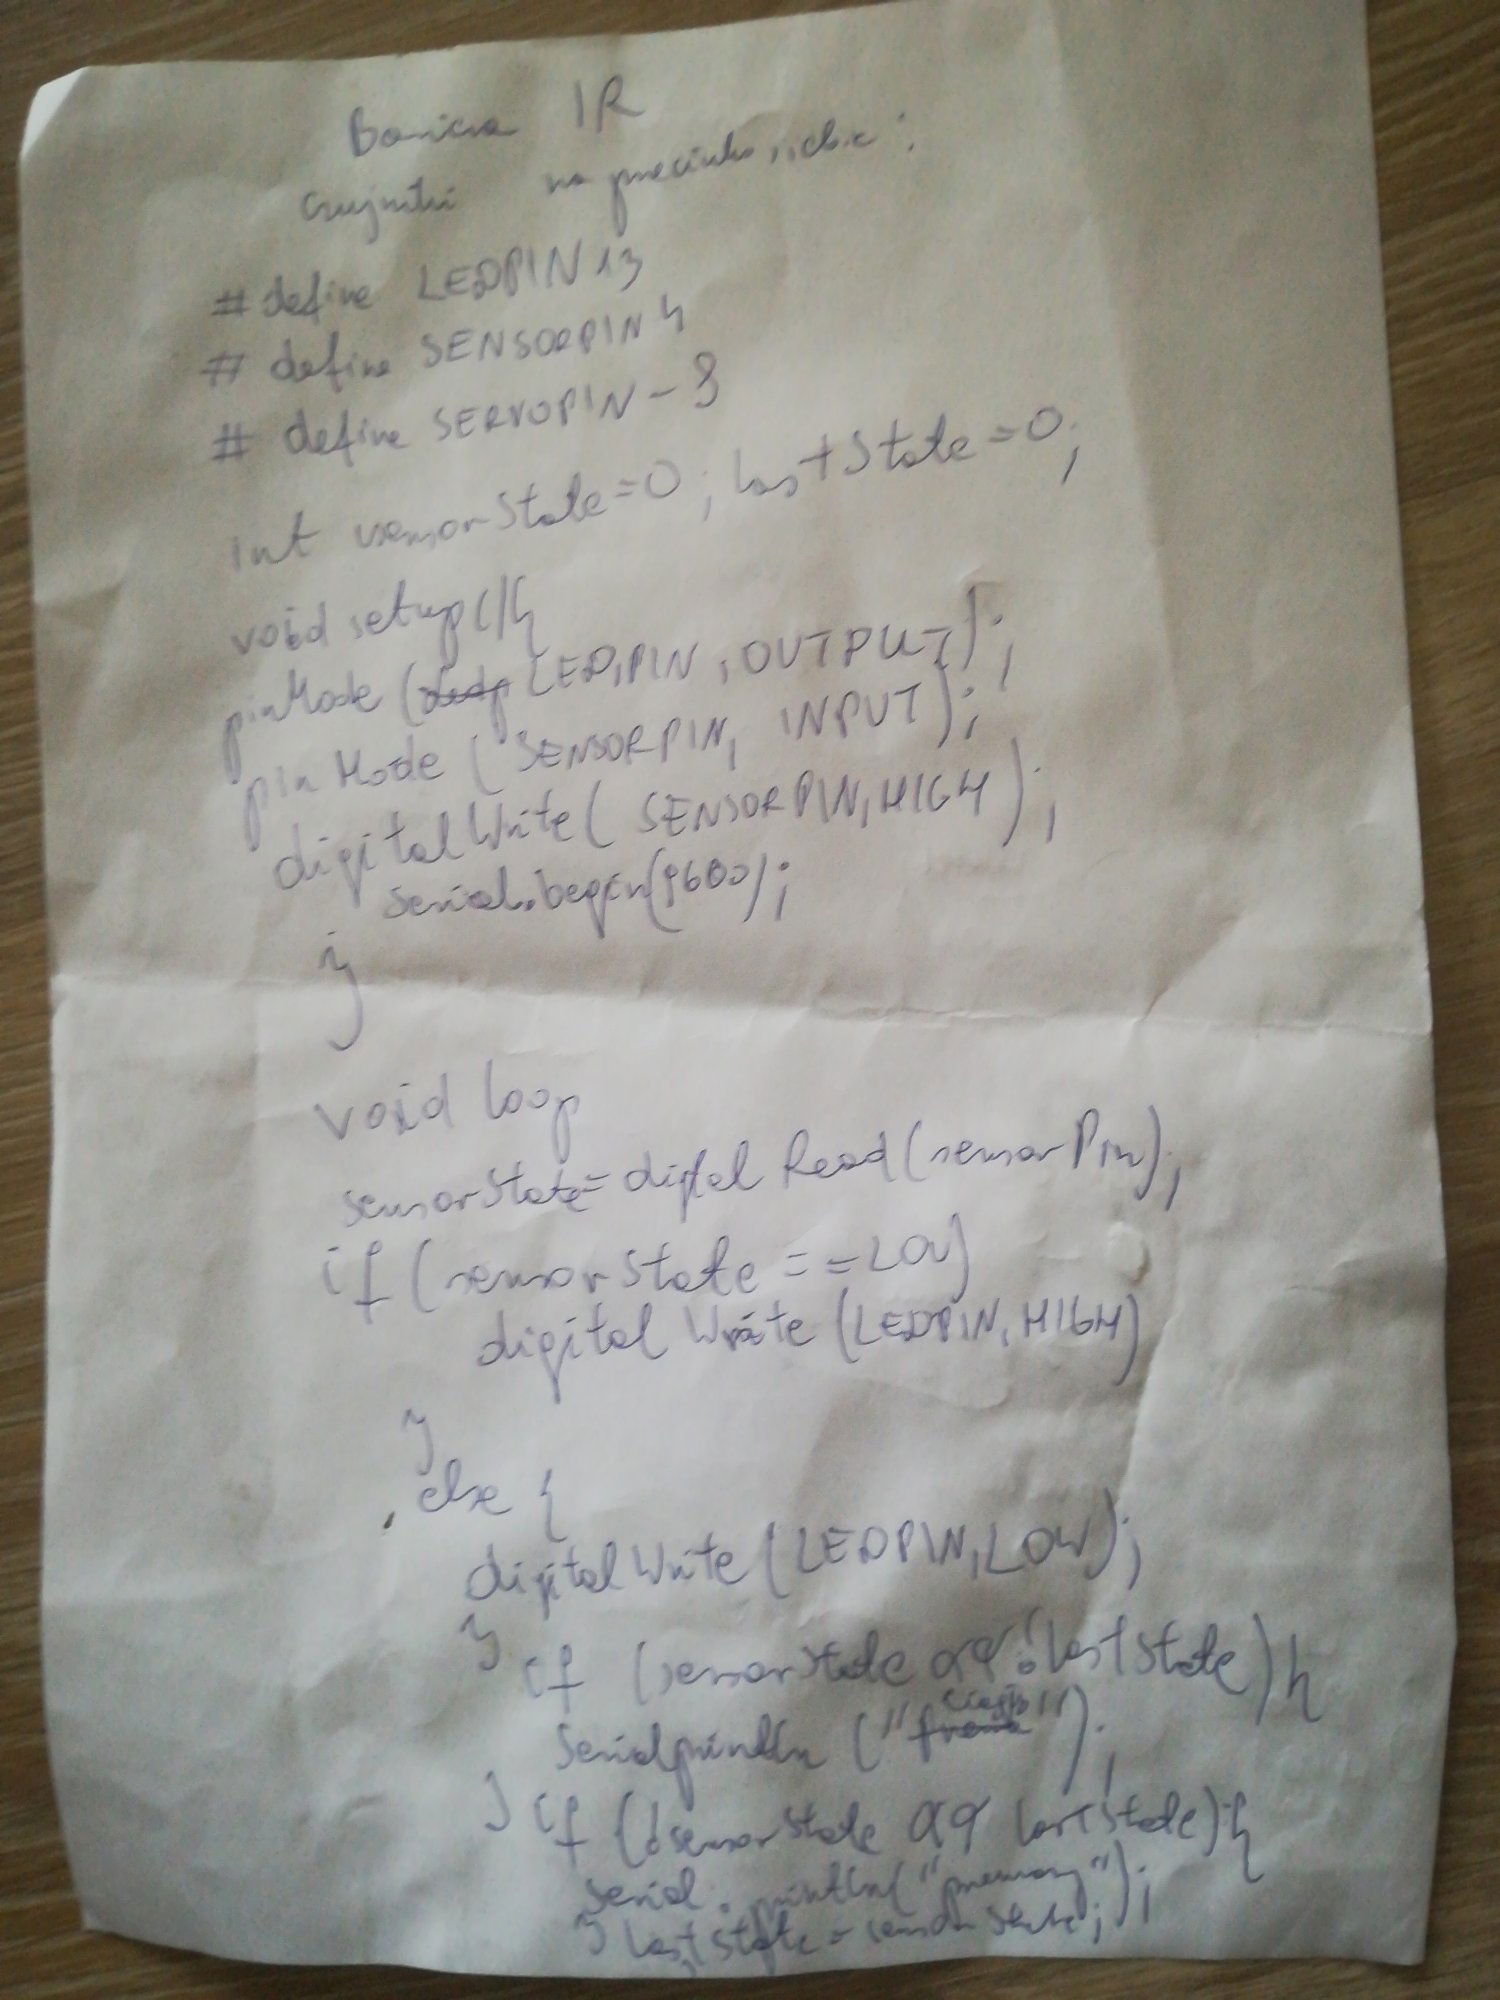 Bariera IR
Czujniki na przecinko
#define LEDPIN 13
# define SENSORPIN 4
# define SERVOPIN - 9
int sensorState=0; lastState=0;
void setup(){
pinMode (ledp LEDPIN, OUTPUT);
pinMode (SENSORPIN, INPUT);
digitalWrite( SENSORPIN, HIGH);
Serial.begin(9600);
}
void loop
sensorState=digital Read(sensorPin);
if (sensorState ==LOW)
digital Write (LEDPIN, HIGH)
}
else {
digitalWrite (LEDPIN, LOW);
}
if (sensorState && !lastState){
Serialprintln (" ");
} if (!sensorState && lastState){
Serial.println(" ");
} lastState = sensorState;